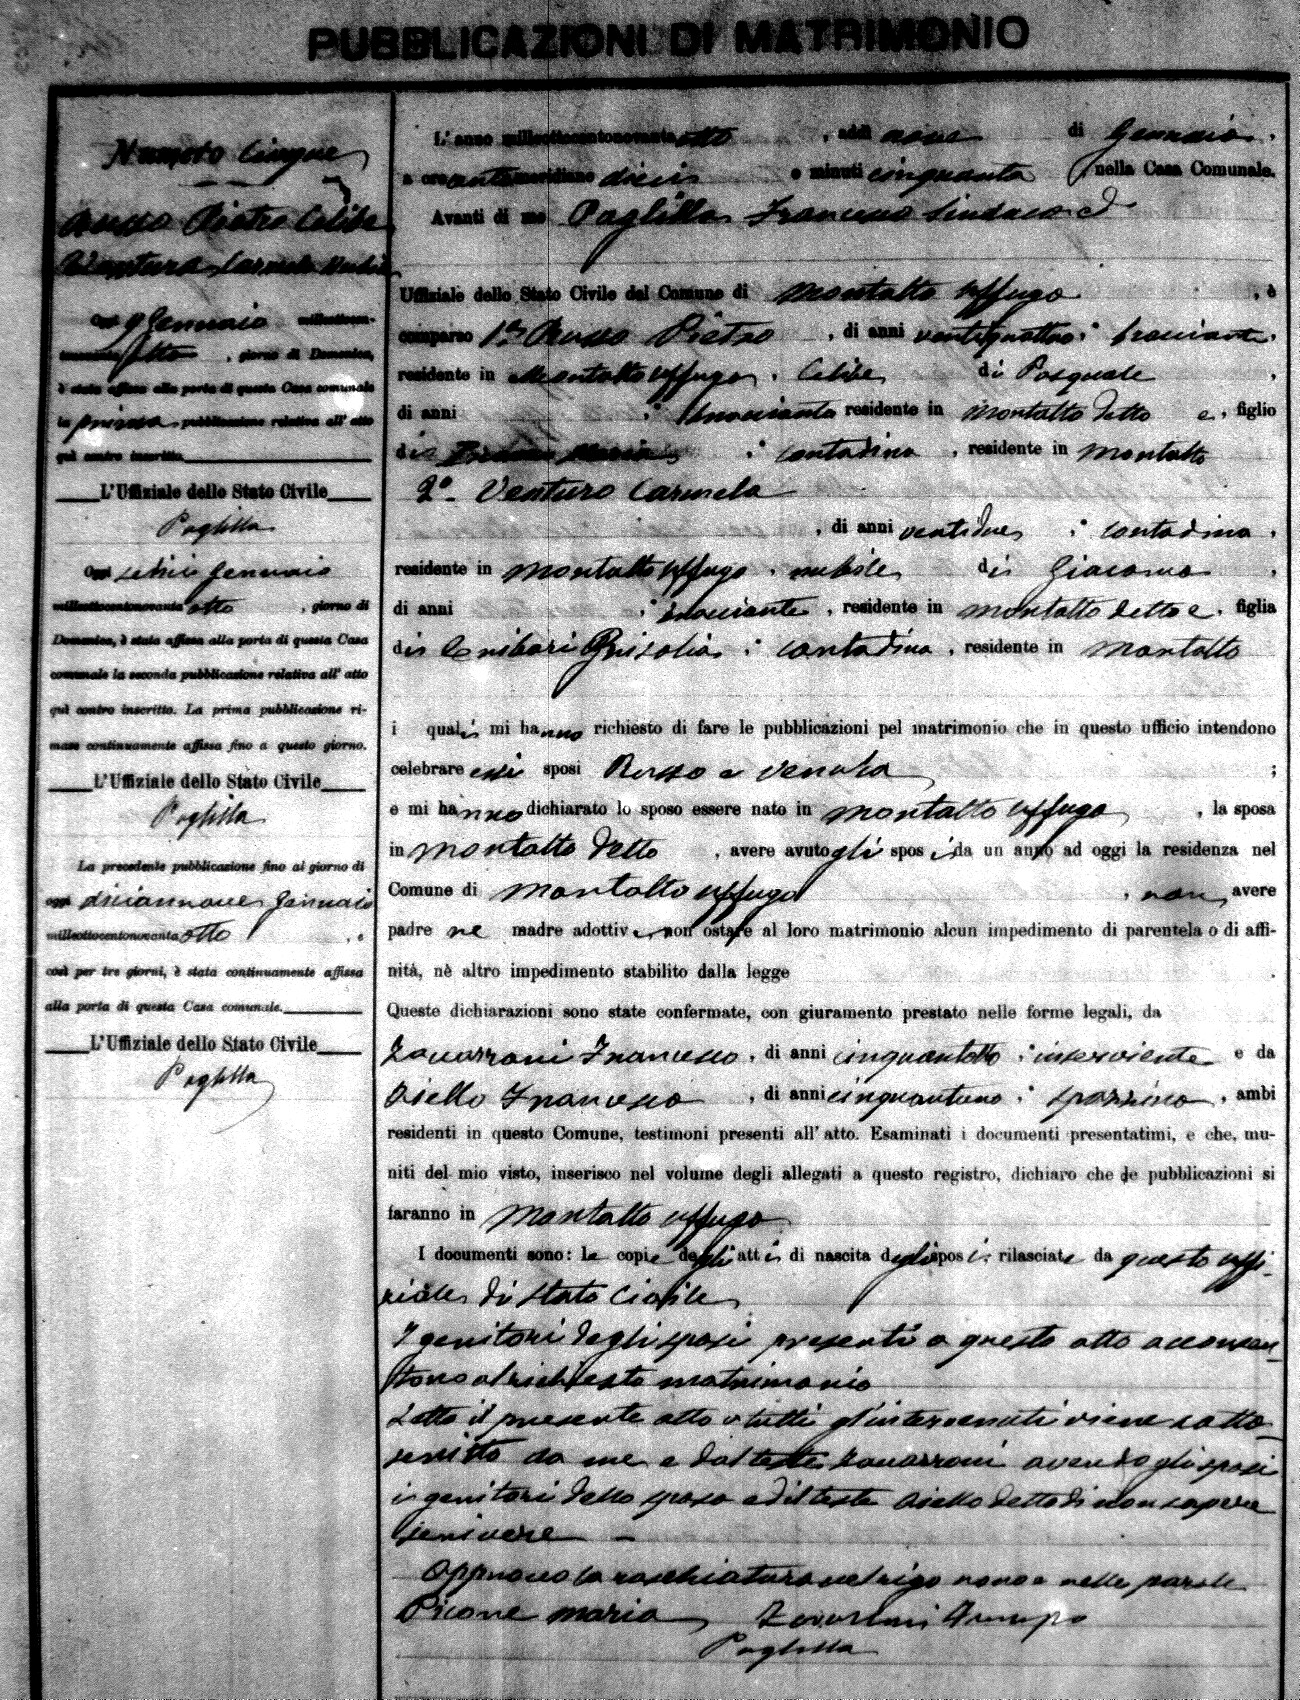 PUBBLICAZIONI DI MATRIMONIO
Numero Cinque
Russo Pietro Celibe
Ventura Carmela Nubile
Oggi 9 Gennaio millottocento-
novanta Otto, giorno di Domenica,
è stata affissa alla porta di questa Casa comunale
la prima pubblicazione relativa all' atto
quì contro inscritto.
L'Uffiziale dello Stato Civile
Paglilla
Oggi sedici Gennaio
millottocentonovanta otto, giorno di
Domenica, è stata affissa alla porta di questa Casa
comunale la seconda pubblicazione relativa all' atto
quì contro inscritto. La prima pubblicazione ri-
mase continuamente affissa fino a questo giorno.
L'Uffiziale dello Stato Civile
Paglilla
La precedente pubblicazione fino al giorno di
oggi diciannove Gennaio
millottocentonovanta otto, e
così per tre giorni, è stata continuamente affissa
alla porta di questa Casa comunale.
L'Uffiziale dello Stato Civile
Paglilla
L'anno millottocentonovanta otto, addì nove di Gennaio,
a ore antemeridiane dieci e minuti cinquanta nella Casa Comunale.
Avanti di me Paglilla Francesco Sindaco ed
Uffiziale dello Stato Civile del Comune di Montalto Uffugo, è
comparso 1º Russo Pietro, di anni ventiquattro; bracciante,
residente in Montalto Uffugo, Celibe di Pasquale,
di anni ; bracciante residente in Montalto detto e, figlio
di Maria; contadina, residente in Montalto
2º Ventura Carmela
, di anni ventidue; contadina,
residente in Montalto Uffugo, nubile di Giacomo,
di anni ; bracciante, residente in Montalto detto e, figlia
di Grisolia; contadina, residente in Montalto
i quali mi hanno richiesto di fare le pubblicazioni pel matrimonio che in questo ufficio intendono
celebrare essi sposi Russo e ;
e mi hanno dichiarato lo sposo essere nato in Montalto Uffugo, la sposa
in Montalto detto, avere avuto gli sposi da un anno ad oggi la residenza nel
Comune di Montalto Uffugo, non avere
padre ne madre adottivi, non ostare al loro matrimonio alcun impedimento di parentela o di affi-
nità, nè altro impedimento stabilito dalla legge.
Queste dichiarazioni sono state confermate, con giuramento prestato nelle forme legali, da
Zavarroni Francesco, di anni cinquantotto; inserviente e da
Aiello Francesco, di anni cinquantuno; spazzino, ambi
residenti in questo Comune, testimoni presenti all' atto. Esaminati i documenti presentatimi, e che, mu-
niti del mio visto, inserisco nel volume degli allegati a questo registro, dichiaro che le pubblicazioni si
faranno in Montalto Uffugo
I documenti sono: le copie degli atti di nascita degli sposi, rilasciate da questo Uffi-
ziale di Stato Civile
I genitori degli sposi presenti a questo atto acconsen-
tono al richiesto matrimonio
Letto il presente atto a tutti gl'intervenuti viene sotto-
scritto da me e dal teste Zavarroni avendo gli sposi
i genitori dello sposo ed il teste Aiello detto di non sapere
scrivere
Approvo la raschiatura nel rigo nono e nelle parole
Picone Maria Zavarroni
Paglilla